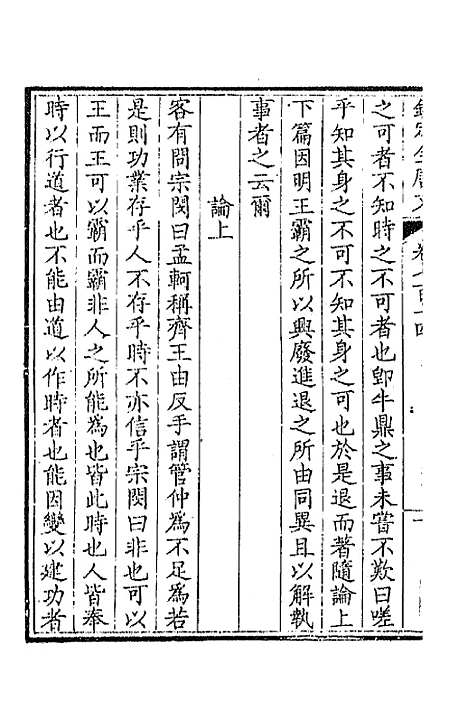 之可者不知時之不可者也卽牛鼎之事未嘗不歎曰嗟
乎知其身之不可不知其身之可也於是退而著隨論上
下篇因明王霸之所以興廢進退之所由同異且以解執
事者之云爾
論上
客有問宗閔曰孟軻稱齊王由反手謂管仲爲不足爲若
是則功業存乎人不存乎時不亦信乎宗閔曰非也可以
王而王可以霸而霸非人之所能爲也皆此時也人皆奉
時以行道者也不能由道以作時者也能因變以建功者